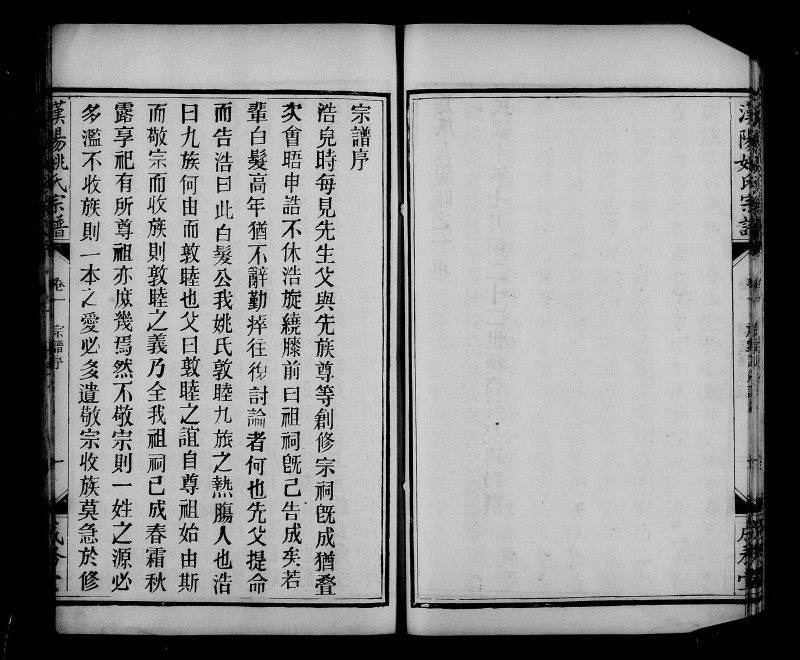 漢陽姚氏宗譜
宗譜序
浩兒時每見先生父與先族尊等創修宗祠旣成猶叠
次會晤申誥不休浩旋繞膝前曰祖祠旣已告成矣若
輩白髮高年猶不辭勤瘁往復討論者何也先父提命
而告浩曰此白髮公我姚氏敦睦九族之熱膓人也浩
曰九族何由而敦睦也父曰敦睦之誼自尊祖始由斯
而敬宗而收族則敦睦之義乃全我祖祠已成春霜秋
露享祀有所尊祖亦庶幾焉然不敬宗則一姓之源必
多濫不收族則一本之愛必多遺敬宗收族莫急於修
漢陽姚氏宗譜
卷一
宗譜序